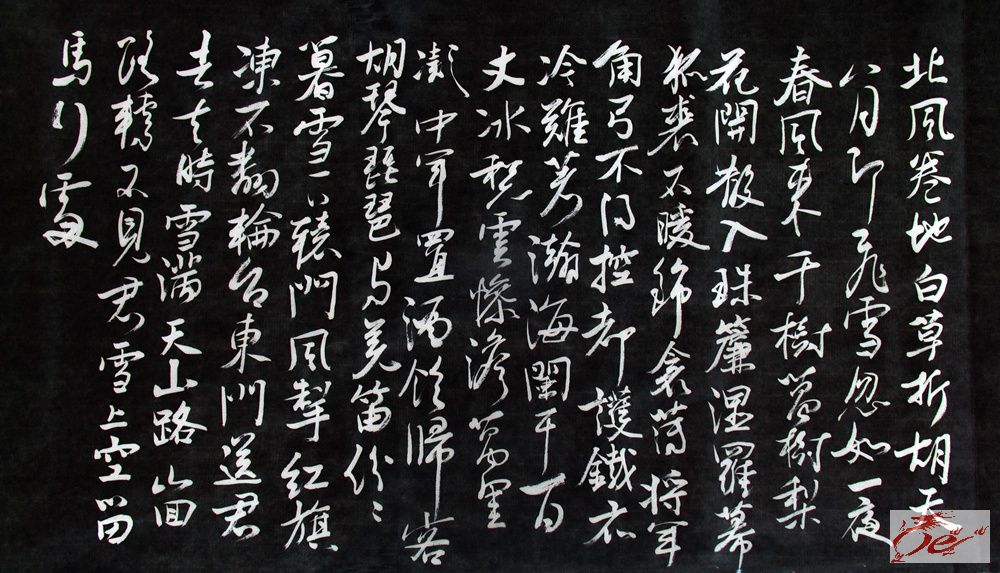 北風卷地白草折胡天
八月即飛雪忽如一夜
春風來千樹萬樹梨
花開散入珠簾濕羅幕
狐裘不暖錦衾薄将軍
角弓不得控都護鐵衣
冷難著瀚海闌干百
丈冰愁雲慘澹萬里
凝中軍置酒飲歸客
胡琴琵琶与羌笛紛〻
暮雪下轅門風掣紅旗
凍不翻輪台東門送君
去去時雪滿天山路山回
路轉不見君雪上空留
馬行處